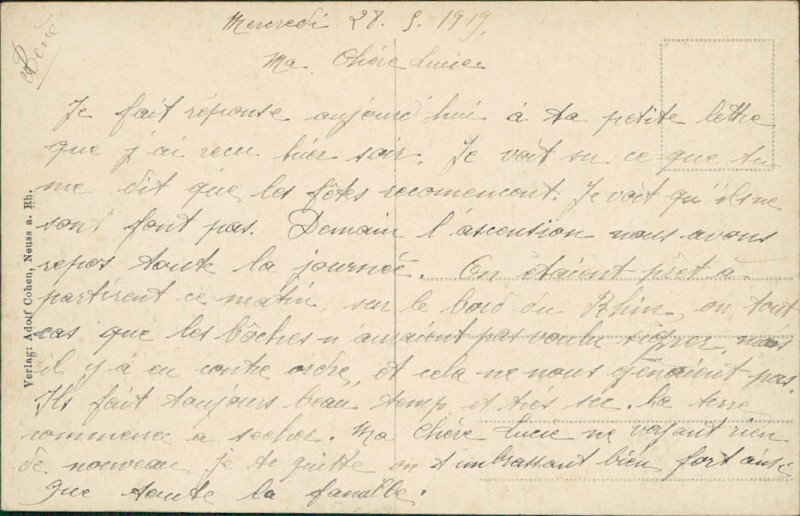 René
Mercredi 28. 5. 1919.
Ma Chére Lucie
Je fait réponse aujourd'hui à ta petite lettre
que j'ai recu hier soir. Je voit su ce que tu
me dit que les fêtes recomencent. Je voit qu'ils ne
son font pas. Demain l'ascension nous avons
repos toute la journée. On étaient prêt à
partirent ce matin, sur le bord du Rhin, en tout
cas que les bôches n'auraient pas voulu signer, mais
il y á eu contre ordre, et cela ne nous gênaient pas.
Ils fait toujours beau temp et très sec. la terre
commence a secher. Ma Chére Lucie ne voyant rien
de nouveau je te quitte en t'embrassant bien fort ainsi
que toute la famille.
Verlag: Adolf Cohen, Neuss a. Rh.